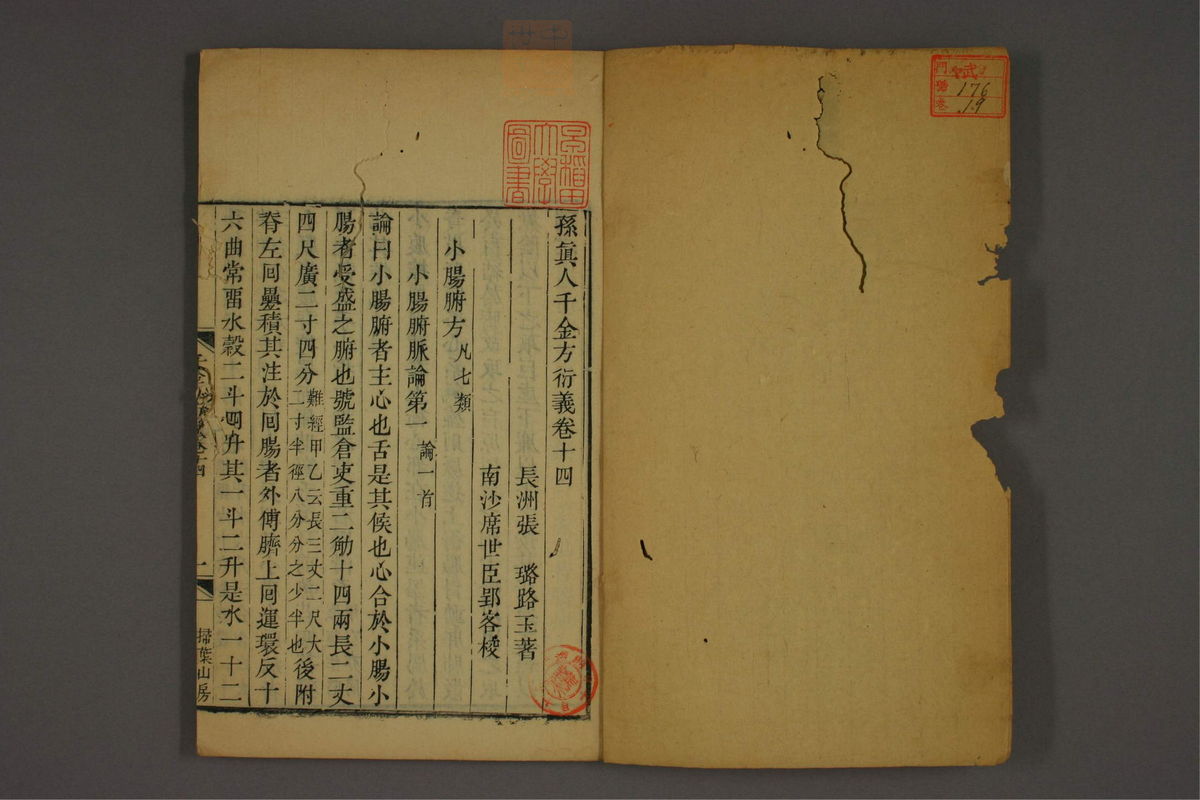 門 武
號 176
卷 19
早稻田
大學
圖書
孫眞人千金方衍義卷十四
長洲張 璐路玉著
南沙席世臣郢客校
小腸腑方凡七類
小腸腑脈論第一 論一首
論曰小腸腑者主心也舌是其候也心合於小腸小
腸者受盛之腑也號監倉吏重二觔十四兩長二丈
四尺廣二寸四分難經甲乙云長三丈二尺大二寸半徑八分分之少半也後附
脊左囘疊積其注於囘腸者外傅臍上囘運環反十
六曲常畱水穀二斗四升其一斗二升是水一十二
一
掃葉山房